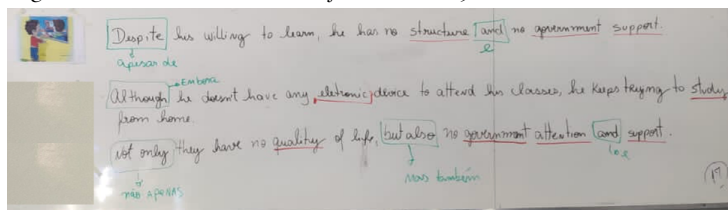 Despite his willing to learn, he has no structure and no government support.
apesar de
e
Embora
Although he doesn't have any eletronic device to attend his classes, he keeps trying to study
from home.
Not only they have no quality of life, but also no government attention and support.
não apenas
mas também
e